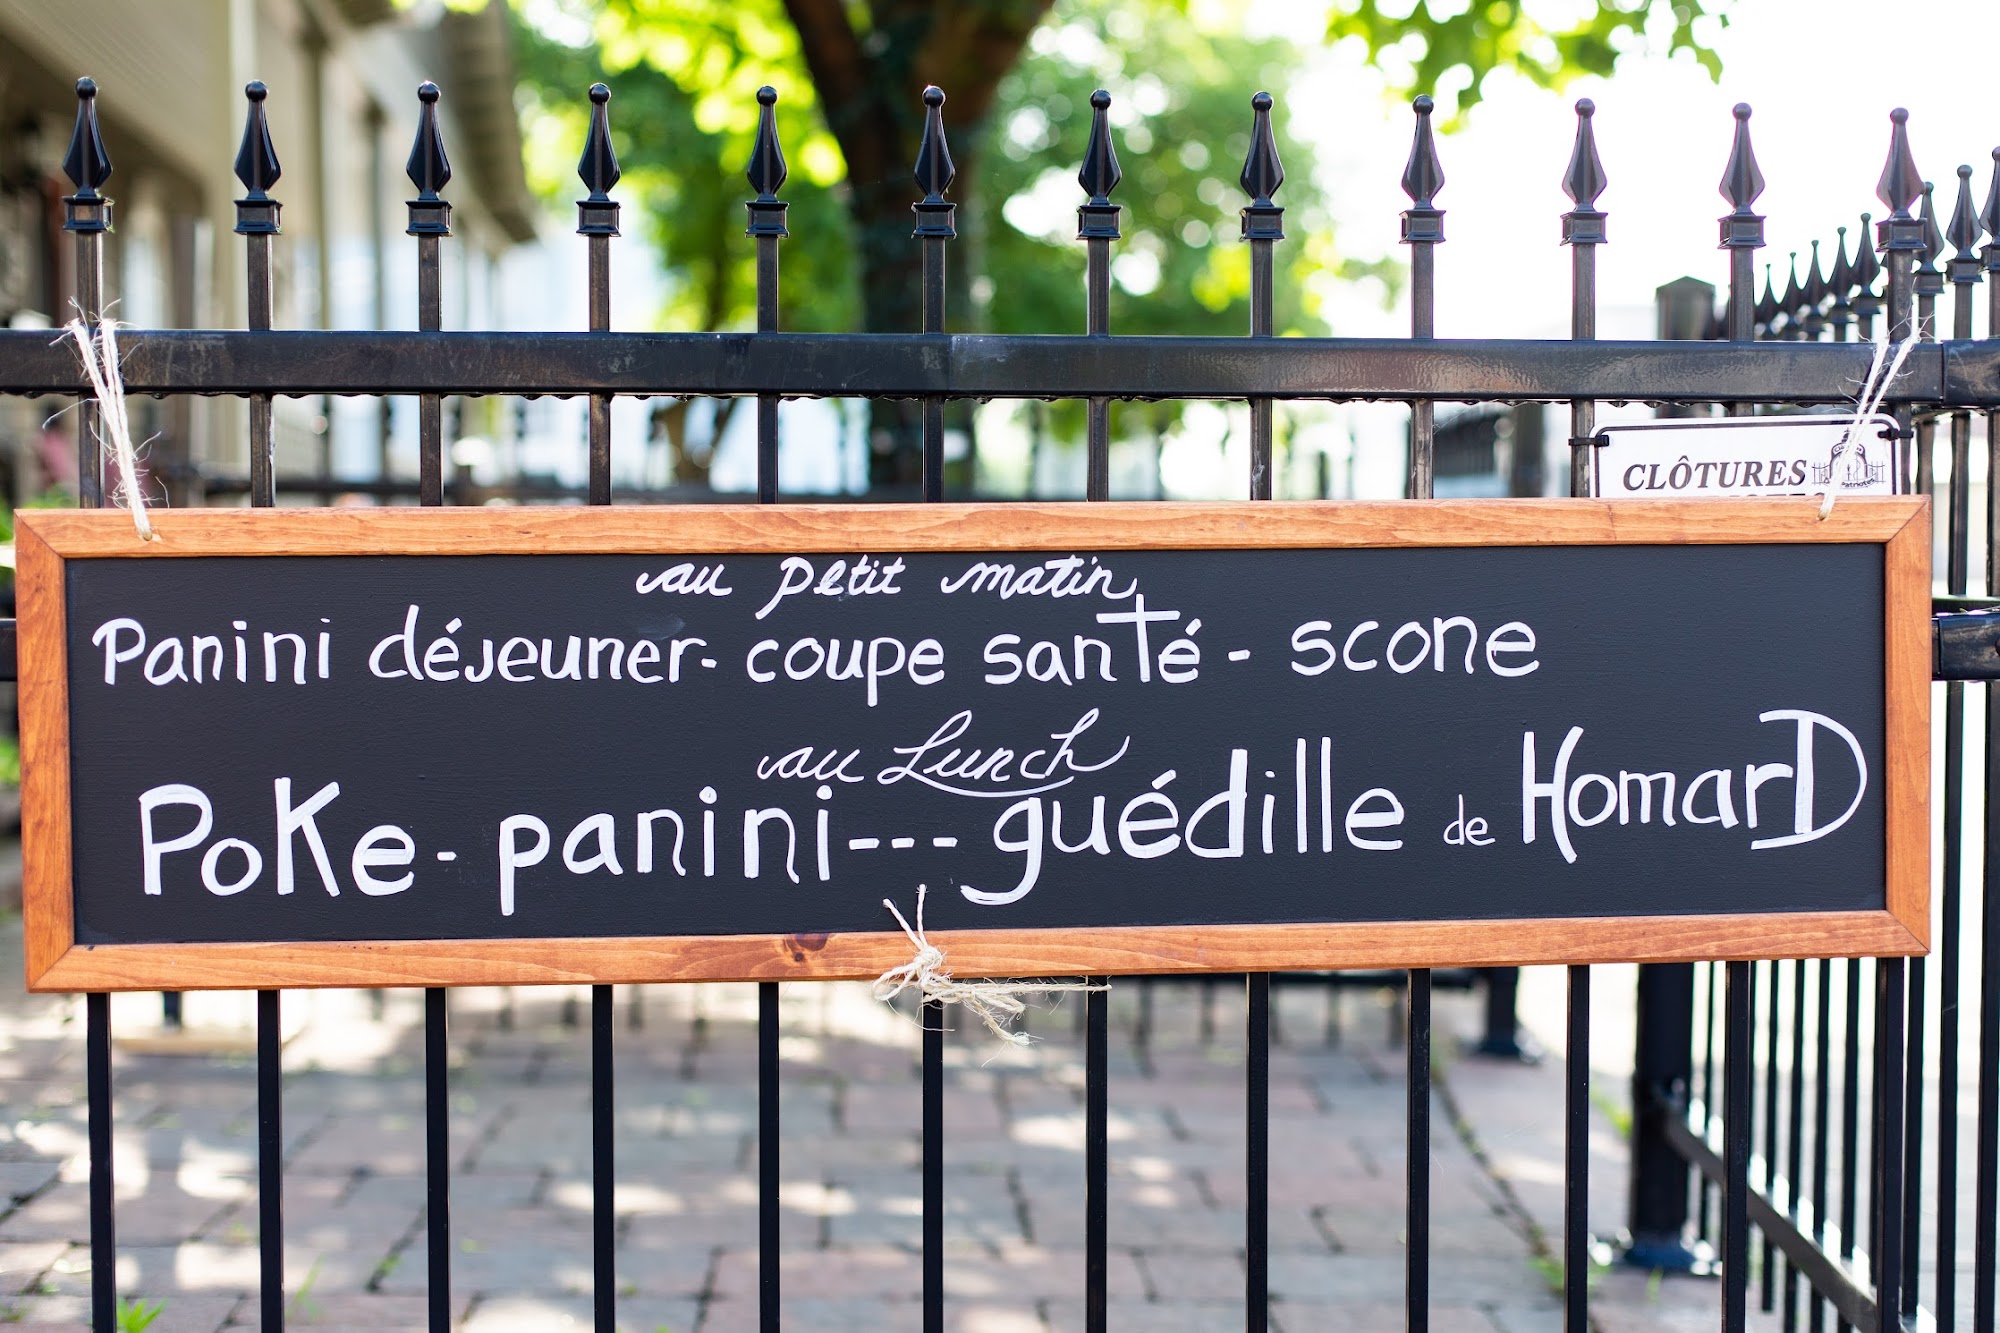 CLÔTURES
Patriotes
au petit matin
Panini déjeuner - coupe santé - scone
au Lunch
Poke - panini --- guédille de HomarD